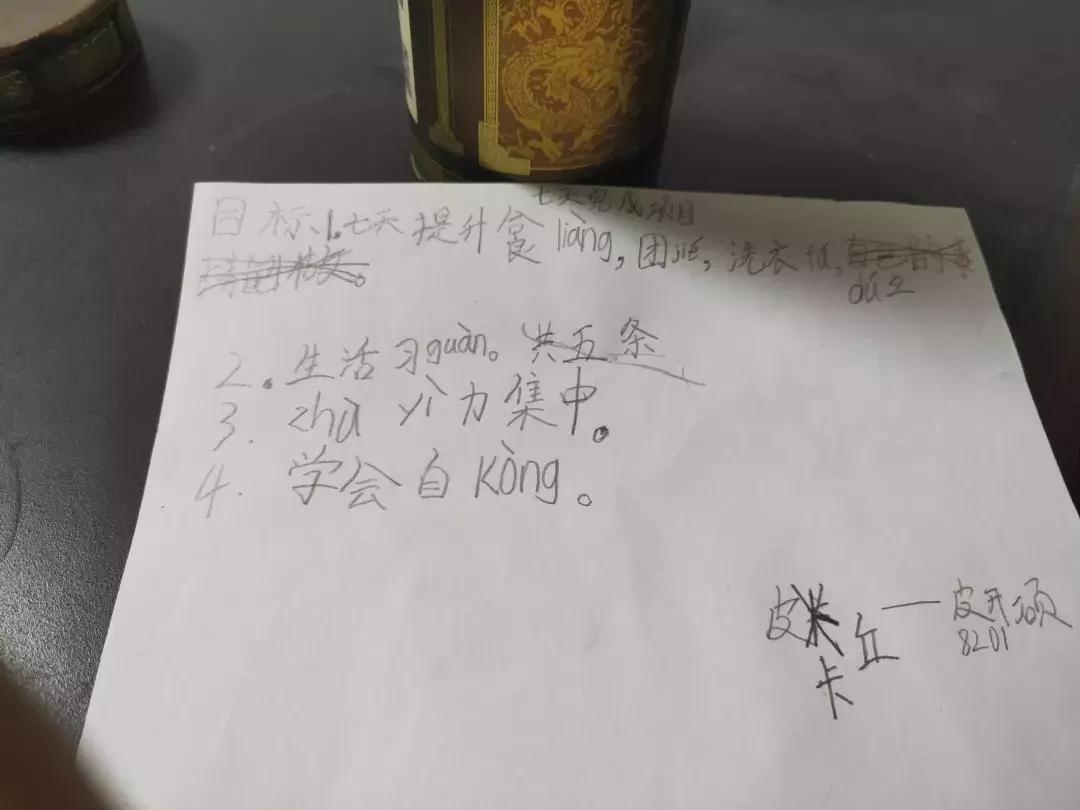 七天完成项目
目标、1.七天提升食liàng,团jié,洗衣fú,
dú立
2.生活习guàn。共五条
3.zhù yì力集中。
4.学会自kòng。
皮 丘——皮开颂
卡 8201